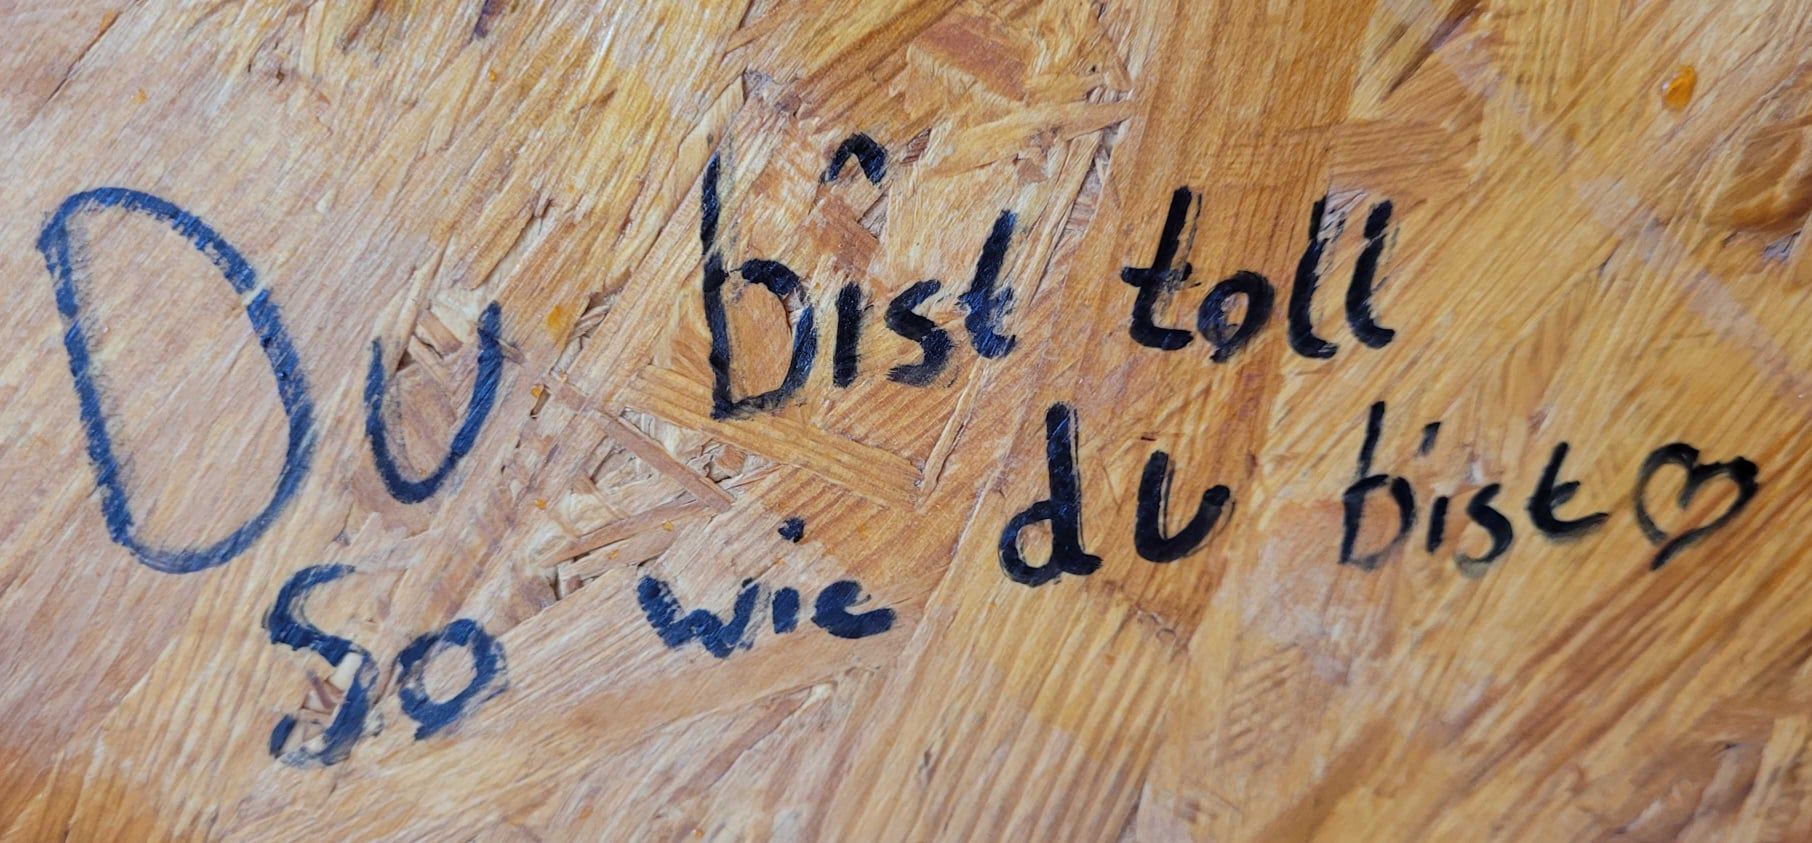 Du bist toll
So wie du bist ♡